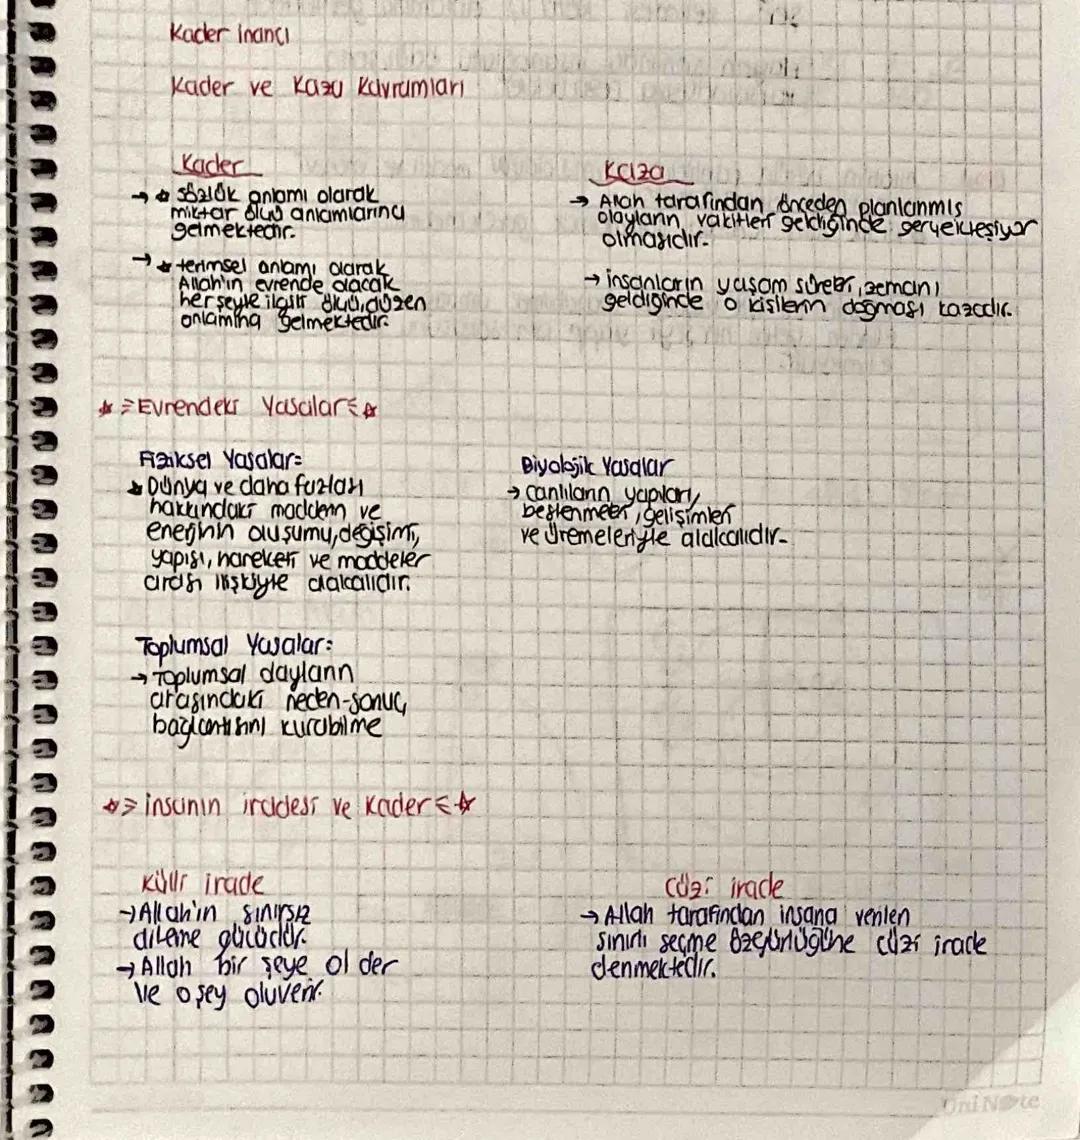 Kader inancı
Kader ve Kaza Kavramları
Kader
→ sözlük anlamı olarak
miktar ölçü anlamlarına
gelmektedir.
→ terimsel anlamı olarak
Allah'ın evrende olacak
herşeyle ilgili ölçü, düzen
anlamına gelmektedir.
Kaza
→ Allah tarafından önceden planlanmış
olayların, vakitleri geldiğinde gerçekleşiyor
olmasıdır.
→ insanların yaşam süreleri, zamanı
geldiğinde o kişilerin doğması kazadır.
Evrendeki Yasalar
Fiziksel Yasalar:
Dünya ve daha fazlası
hakkındaki madden ve
enerjinin oluşumu, değişimi,
yapısı, hareketi ve maddeler
arası ilişkiyle alakalıdır.
Biyolojik Yasalar
→ canlıların yapıları,
beslenmeleri, gelişimleri
ve üremeleriyle alakalıdır.
Toplumsal Yasalar:
→ Toplumsal olayların
arasındaki neden-sonuç
bağlantısını kurabilme
insanın iradesi ve Kader
Külli irade
→ Allah'ın sınırsız
dileme gücüdür.
→ Allah bir şeye ol der
ve o şey oluverir.
Cüzi irade
→ Allah tarafından insana verilen
sınırlı seçme özgürlüğüne cüzi irade
denmektedir.
UniNote